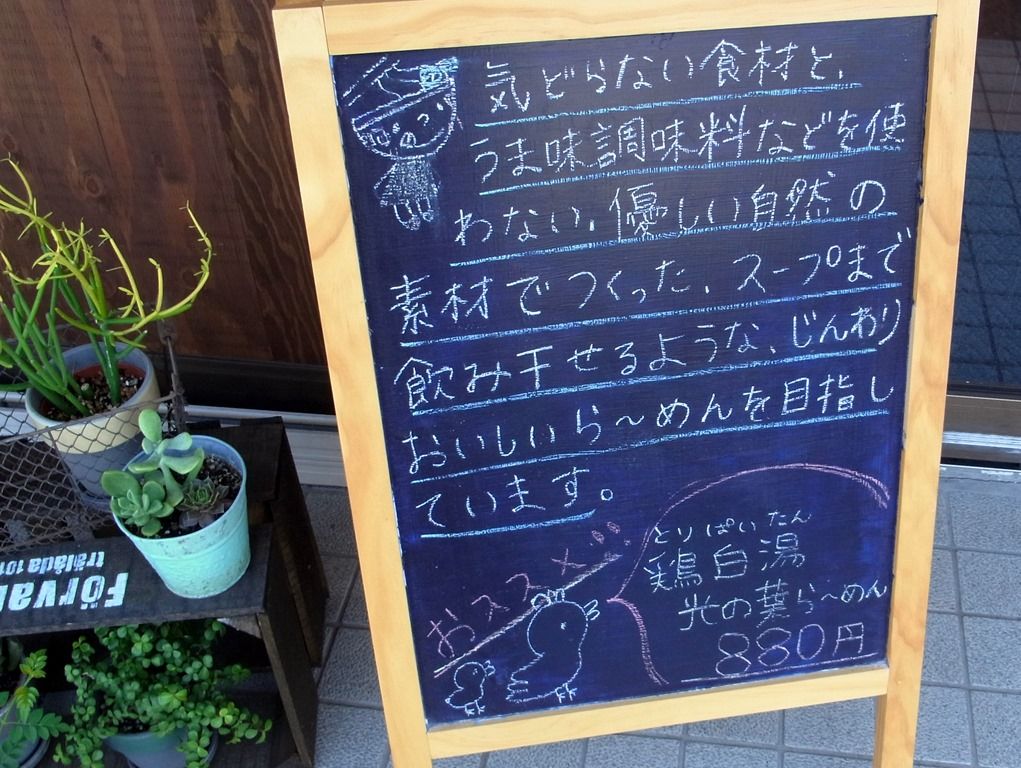 気どらない食材と、
うま味調味料などを使
わない、優しい自然の
素材でつくった、スープまで
飲み干せるような、じんわり
おいしいら～めんを目指し
ています。
おススメ
とりぱいたん
鶏白湯
光の葉ら～めん
880円
Förvar
trälåda 101